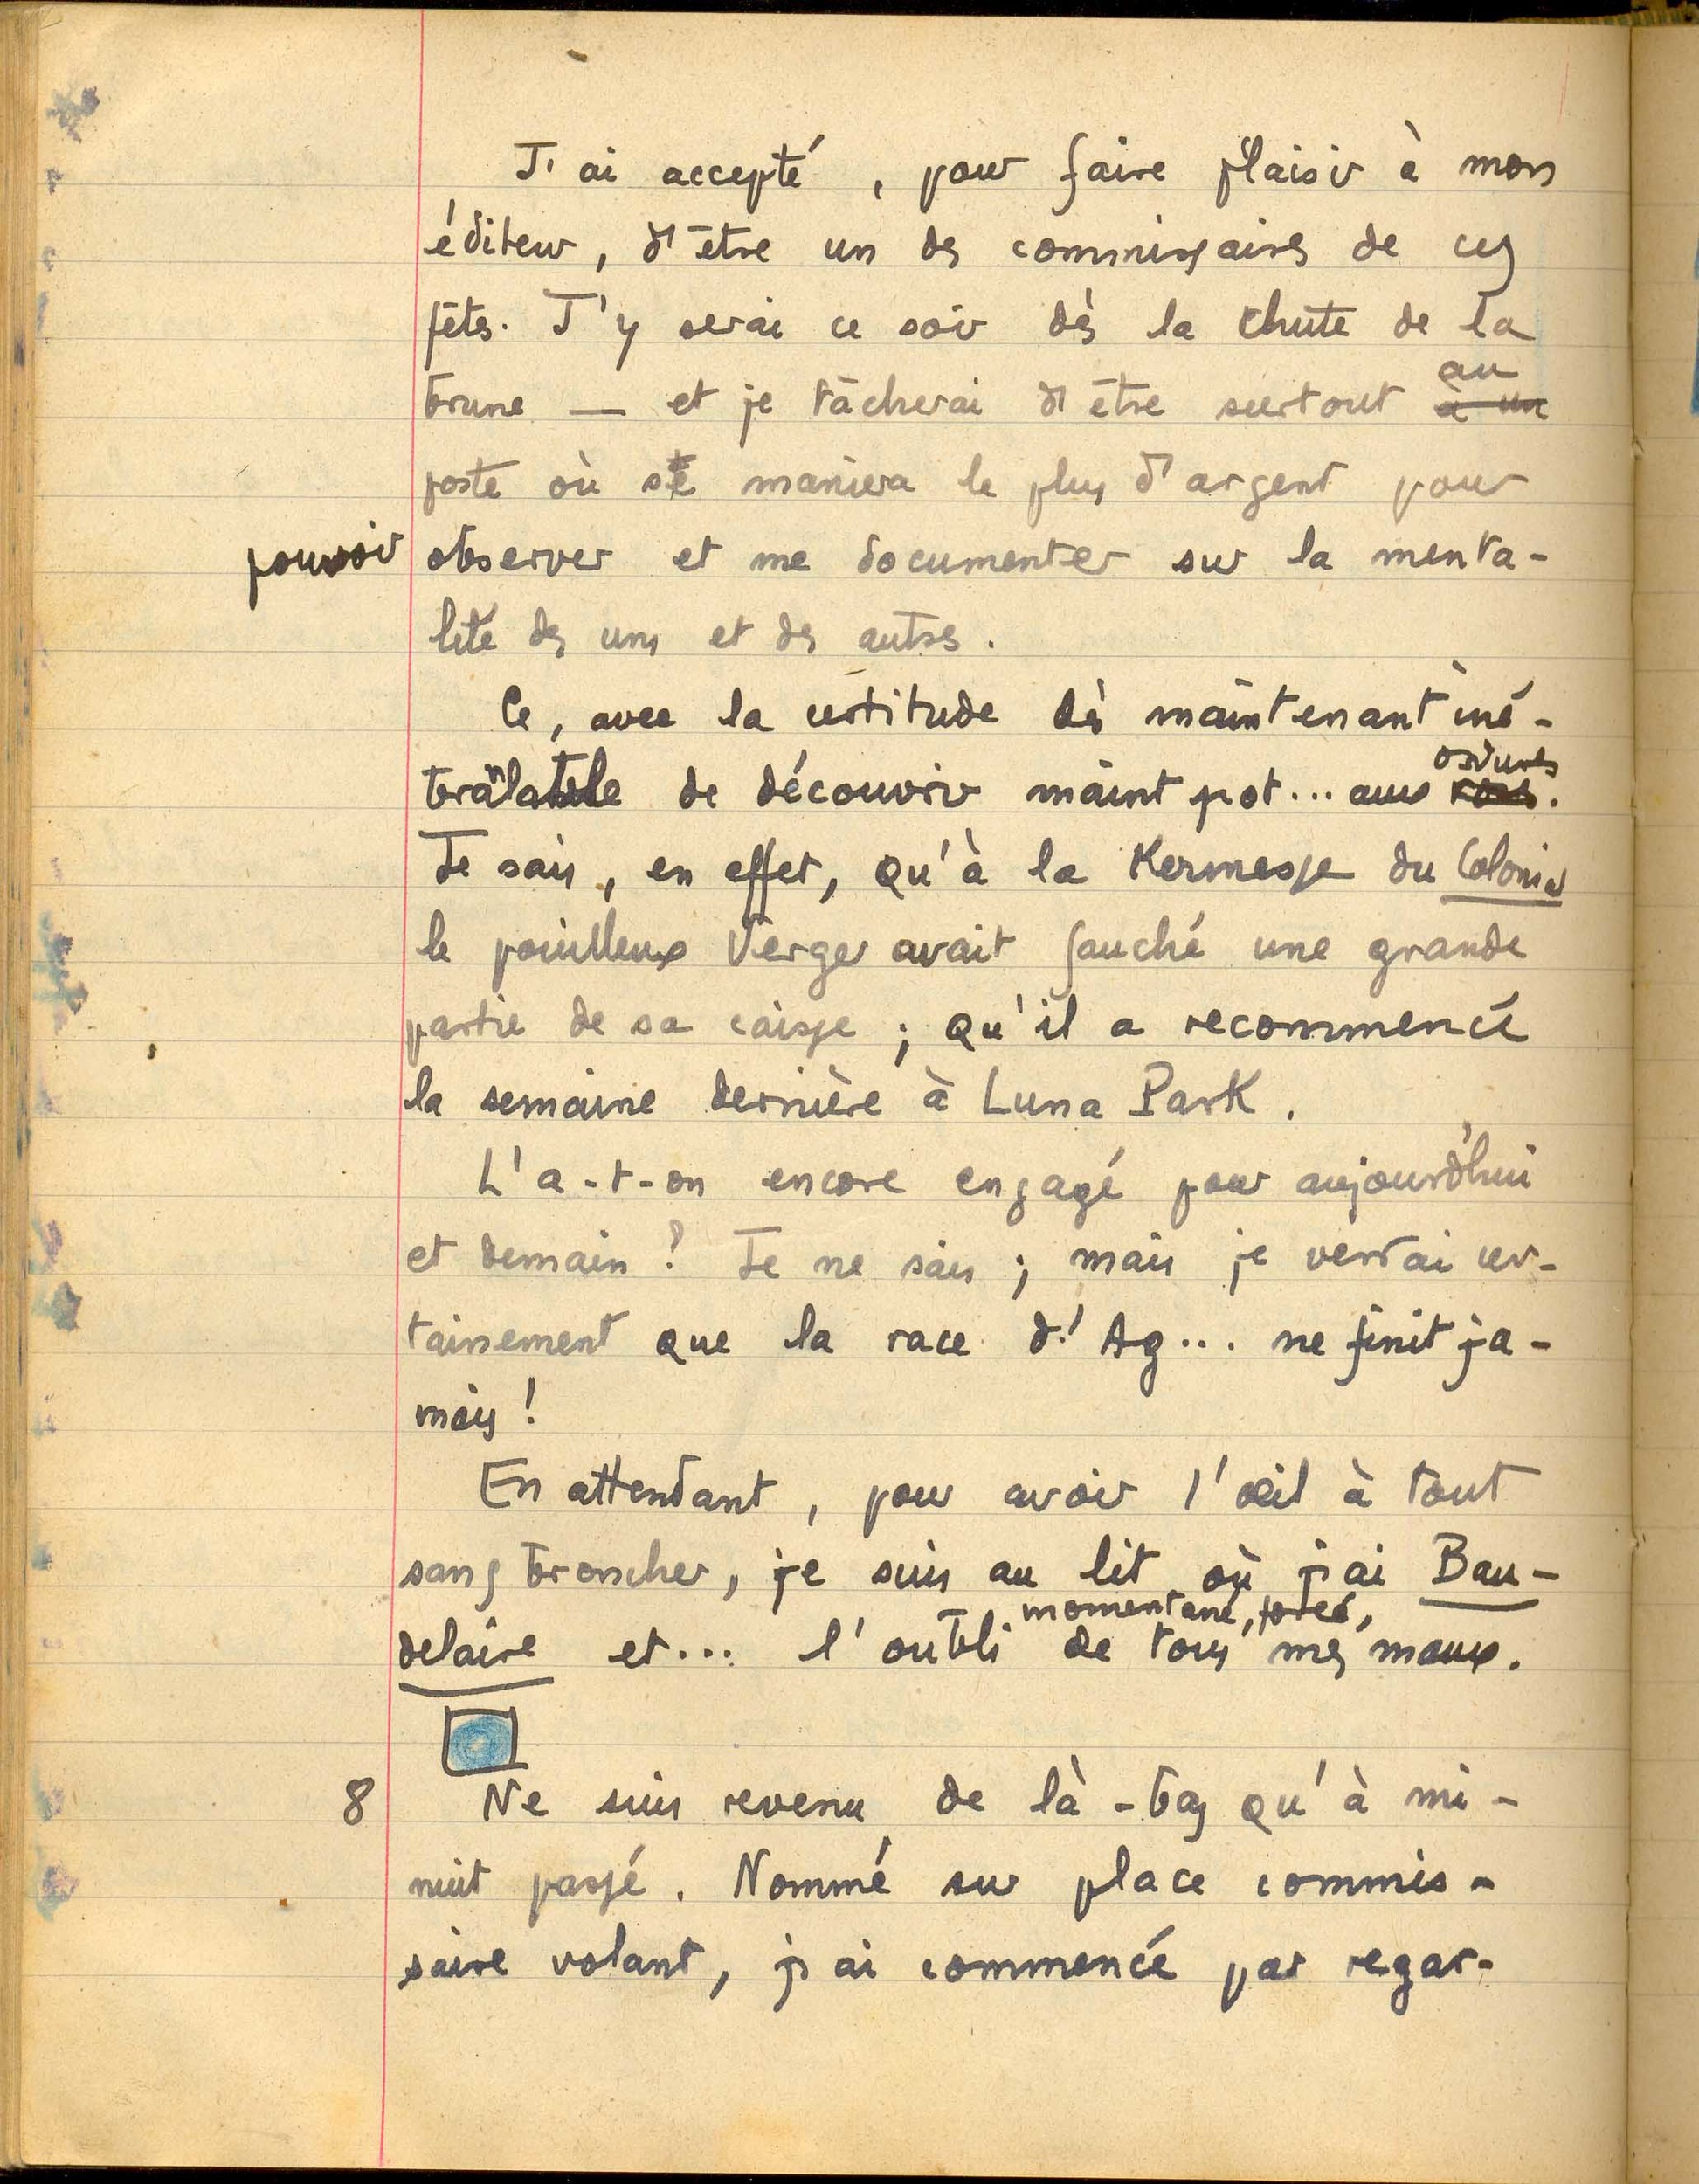 J'ai accepté, pour faire plaisir à mon
éditeur, d'être un des commissaires de ces
fêtes. J'y serai ce soir dès la chute de la
brune — et je tâcherai d'être surtout ~~à un~~ au
poste où se maniera le plus d'argent pour
pouvoir observer et me documenter sur la menta-
lité des uns et des autres.
Ce, avec la certitude dès maintenant iné-
branlable de découvrir maint pot... aux ordures.
Je sais, en effet, qu'à la Kermesse du Colonial
le pouilleux Verger avait fauché une grande
partie de sa caisse ; qu'il a recommencé
la semaine dernière à Luna Park.
L'a-t-on encore engagé pour aujourd'hui
et demain ? Je ne sais ; mais je verrai cer-
tainement que la race d'Ag... ne finit ja-
mais !
En attendant, pour avoir l'œil à tout
sans broncher, je suis au lit où j'ai Bau-
delaire et... l'oubli momentané, forcé, de tous mes maux.
8 Ne suis revenu de là-bas qu'à mi-
nuit passé. Nommé sur place commis-
saire volant, j'ai commencé par regar-